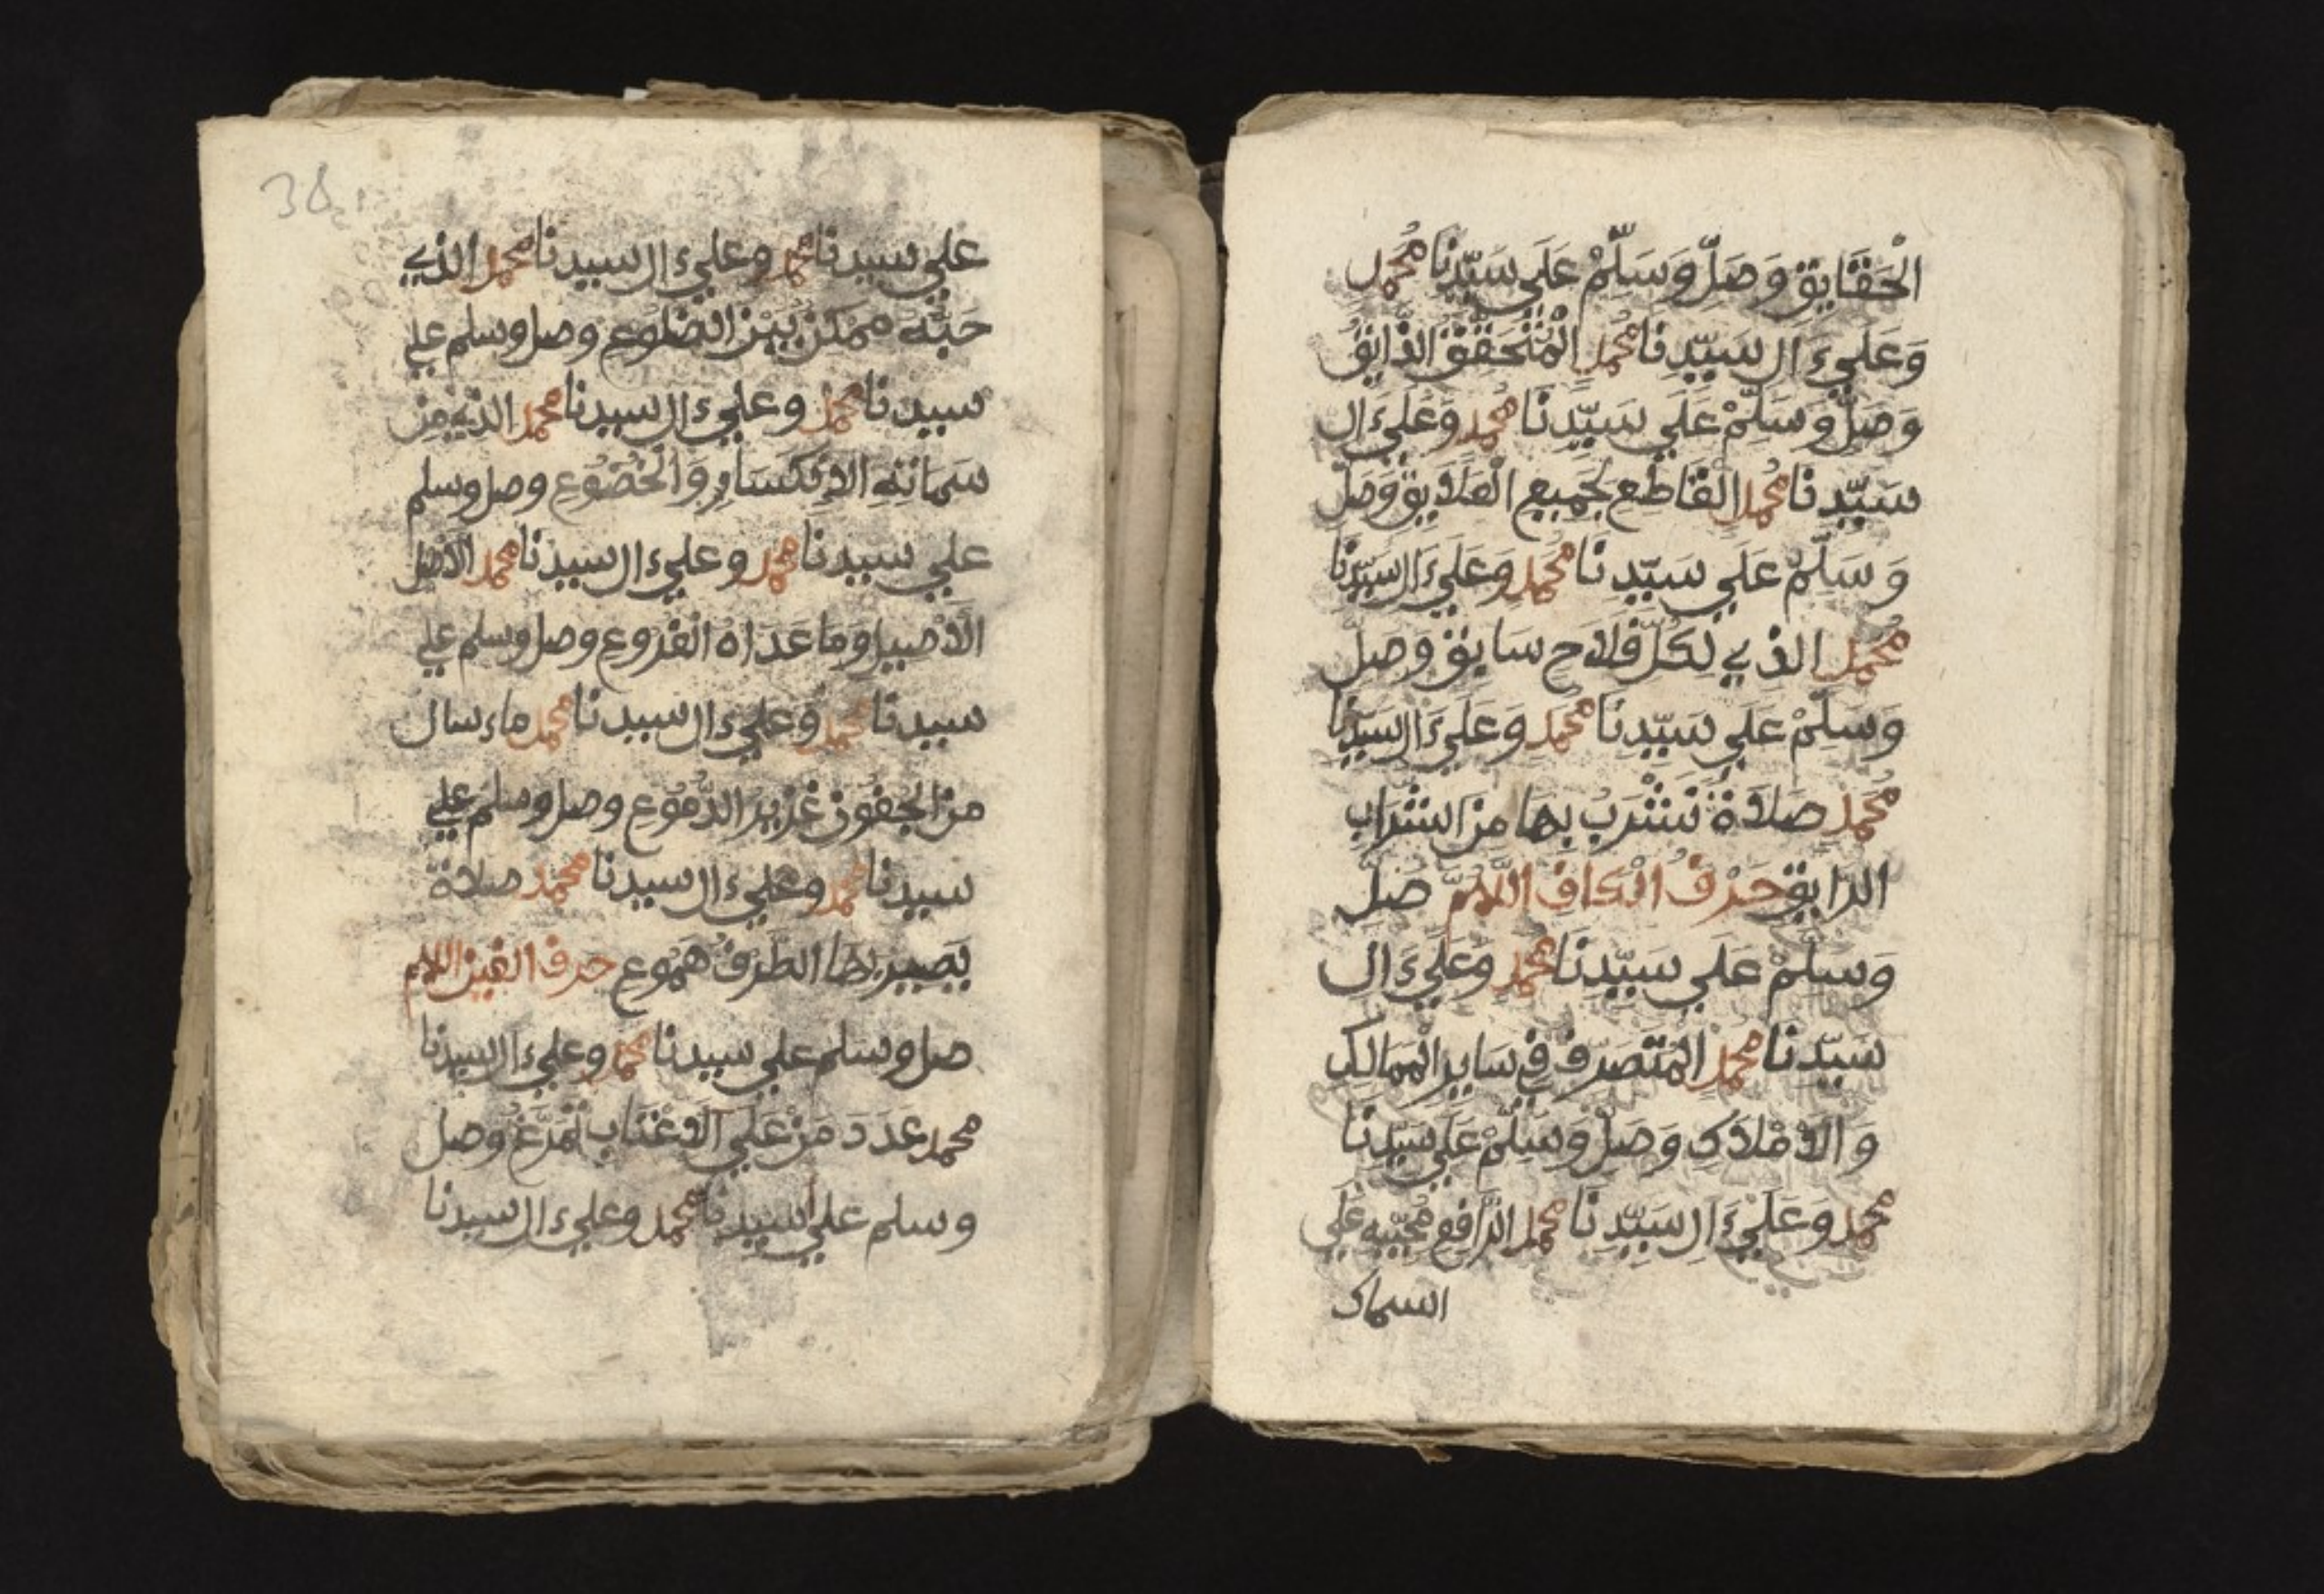 الْحَقَايِقِ وَصَلِّ وَسَلِّمْ عَلَي سَيِّدِنَا مُحَمَّد
وَعَلَيءَالِ سَيِّدِنَا مُحَمَّد الْمُتَحَقِّقِ الذَّايِقِ
وَصَلِّ وَسَلِّمْ عَلَي سَيِّدِنَا مُحَمَّد وَعَلَيءَال
سَيِّدِنَا مُحَمَّد الْقَاطِع لِجَمِيعِ الْعَلَايِقِ وَصَلِّ
وَسَلِّمْ عَلَي سَيِّدِنَا مُحَمَّد وَعَلَيءَالِ سَيِّدِنَا
مُحَمَّد الذِي لِكُلِّ فَلَاح سَايِق وَصَلِّ
وَسَلِّمْ عَلَي سَيِّدِنَا مُحَمَّد وَعَلَيءَالِ سَيِّدِنَا
مُحَمَّد صَلَاةً نَشْرَبُ بِهَا مِنَ الشَّرَابِ
الرَّايِقِ حَرْفُ الْكَافِ اللَّهُمَّ صَلِّ
وَسَلِّمْ عَلَي سَيِّدِنَا مُحَمَّد وَعَلَيءَال
سَيِّدِنَا مُحَمَّد الْمُتَصَرِّفِ فِي سَايِرِ الْمَمَالِكِ
وَالَامْلَاكِ وَصَلِّ وَسَلِّمْ عَلَي سَيِّدِنَا
مُحَمَّد وَعَلَيءَالِ سَيِّدِنَا مُحَمَّد الرَّافِعِ مُحِبِّيهِ عَلَي
السماك
38
علي سيدنا محمد وعليءال سيدنا محمد الذي
حُبُّهُ ممكن بين الضلوع وصل وسلم علي
سيدنا محمد وعليءال سيدنا محمد الذي مِن
سَمَاتِهِ الانكسارِ وَالْخُضُوعِ وصل وسلم
علي سيدنا محمد وعليءال سيدنا محمد الاصل
الَاصيل وما عَدَاه الفروع وصل وسلم علي
سيدنا محمد وعليءال سيدنا محمد ماءسال
من الجفون غزير الدُّمُوع وصل وسلم علي
سيدنا محمد وعليءال سيدنا محمد صلاة
يصير بها الطَرْفُ هَمُوع حرف الغين اللهم
صل وسلم علي سيدنا محمد وعليءال سيدنا
محمد عدد مَنْ علي الَاعْتَاب تمَرَّغ وصل
وسلم علي سيدنا محمد وعليءال سيدنا